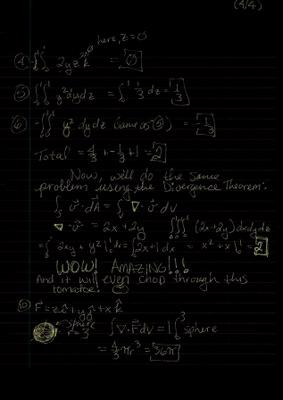 (4/4)
here, z=0
④ ∫₀¹∫₀² 2yz k̂ = 0
⑤ ∫₀¹∫₀¹ y² dy dz = ∫₀¹ 1/3 dz = 1/3
⑥ -∫₀¹∫₀¹ y² dy dz (same as ⑤) = -1/3
Total = 4/3 + -1/3 + 1 = 2
Now, we'll do the same
problem using the Divergence Theorem:
∫ₛ v⃗·dA⃗ = ∫ ∇·v⃗ dv
∇·v⃗ = 2x + 2y ∫₀¹∫₀¹∫₀¹ (2x+2y) dx dy dz
= ∫₀¹ 2xy + y²|₀¹ dx = ∫₀¹ 2x+1 dx = x² + x|₀¹ = 2
WOW! AMAZING!!!
And it will even chop through this
tomatoe!
b) F⃗ = zî + yĵ + xk̂
sphere r=3 ∫ ∇·F⃗ dv = 1∫₀³ sphere
= 4/3 πr³ = 36π